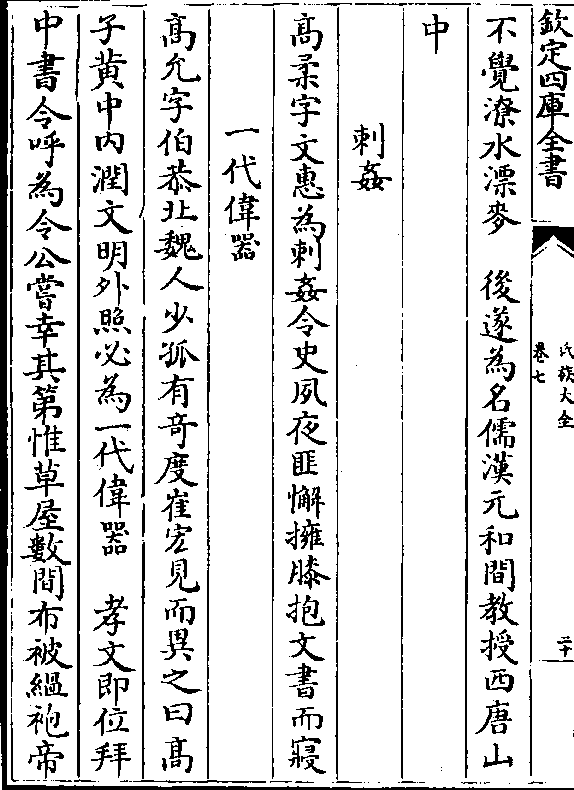 欽定四庫全書
氏族大全
卷七
二十
不覺潦水漂麥　後遂為名儒漢元和間教授西唐山
中
刺姦
高柔字文惠為刺姦令史夙夜匪懈擁膝抱文書而寢
一代偉器
高允字伯恭北魏人少孤有奇度崔宏見而異之曰高
子黄中内潤文明外照必為一代偉器　孝文即位拜
中書令呼為令公嘗幸其第惟草屋數間布被縕袍帝